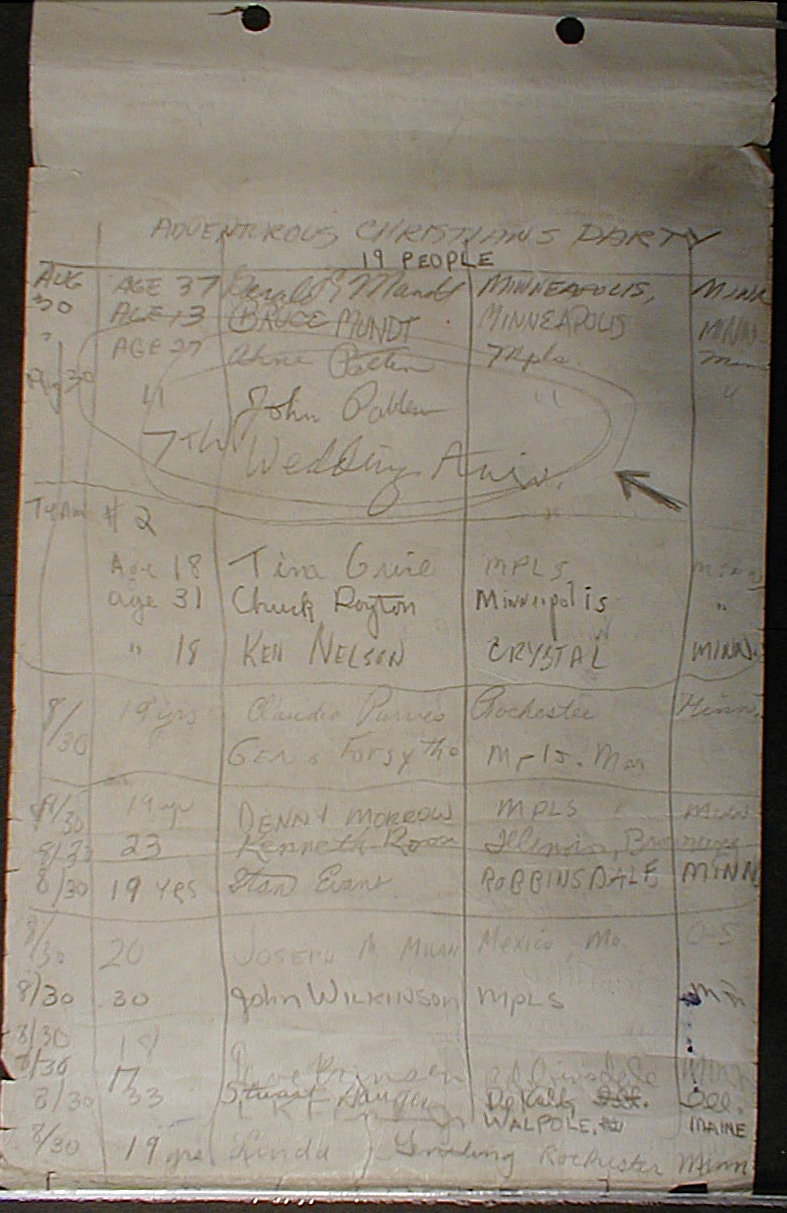 ADVENTUROUS CHRISTIANS PARTY
19 PEOPLE
AUG 30 AGE 37 Gerald Mundt MINNEAPOLIS, MINN
" AGE 13 BRUCE MUNDT MINNEAPOLIS MINN.
Aug 30 AGE 27 Mpls.
" John " "
7TH Wedding Aniv.
#2
Age 18 Tina MPLS MINN
age 31 Chuck Royton Minneapolis "
" 18 KEN NELSON CRYSTAL MINN.
8/30 19 yrs Claudia Purves Rochester Minn.
Mpls. Mn
8/30 19 yr DENNY MORROW MPLS MINN
8/30 23 Kenneth Illinois,
8/30 19 YRS Stan Evans ROBBINSDALE MINN
8/30 20 JOSEPH M. MILAN Mexico, Mo.
8/30 30 John WILKINSON MPLS Mn
8/30
8/30 17 Minn
8/30 33 Stuart DeKalb, Ill.
WALPOLE, MAINE
8/30 19 yrs Linda Rochester Minn